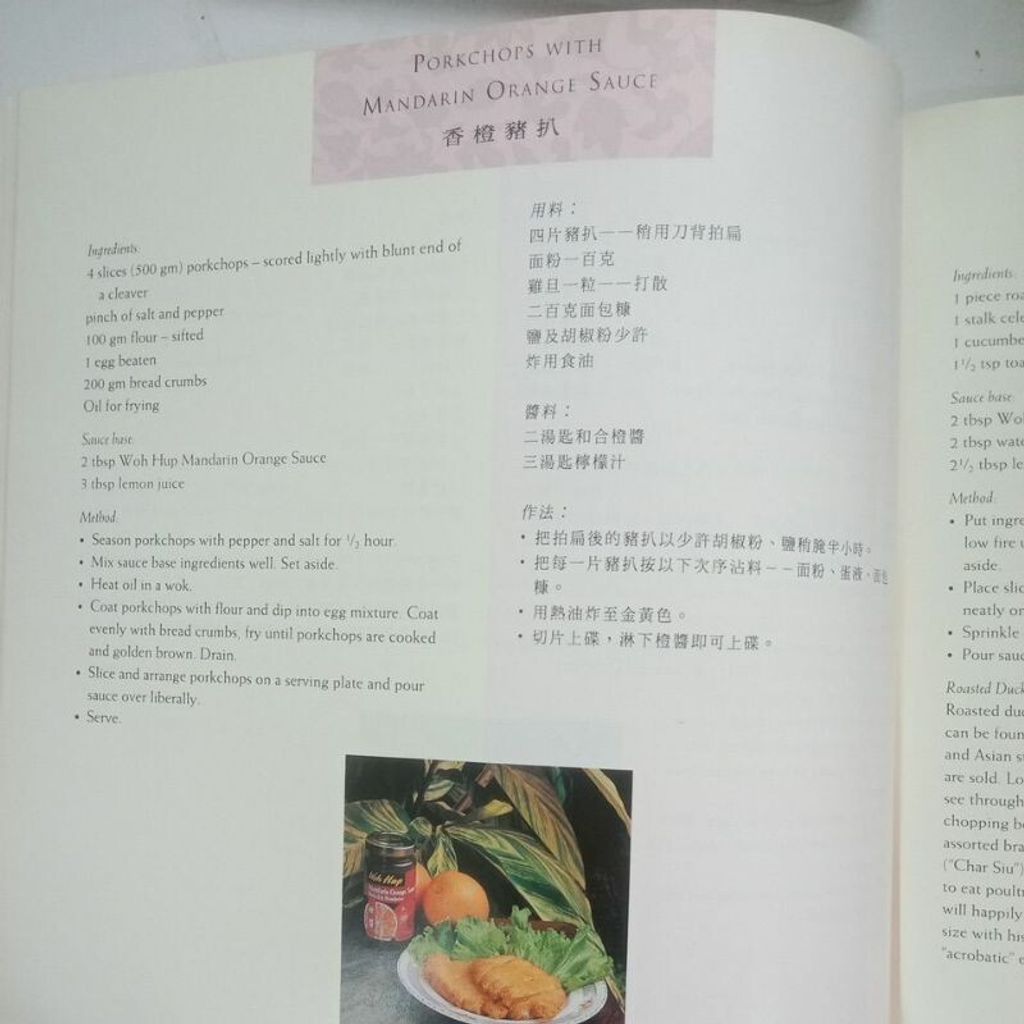 PORKCHOPS WITH
MANDARIN ORANGE SAUCE
香橙豬扒
Ingredients:
4 slices (500 gm) porkchops – scored lightly with blunt end of
a cleaver
pinch of salt and pepper
100 gm flour – sifted
1 egg beaten
200 gm bread crumbs
Oil for frying
Sauce base:
2 tbsp Woh Hup Mandarin Orange Sauce
3 tbsp lemon juice
Method:
• Season porkchops with pepper and salt for 1/2 hour.
• Mix sauce base ingredients well. Set aside.
• Heat oil in a wok.
• Coat porkchops with flour and dip into egg mixture. Coat
evenly with bread crumbs, fry until porkchops are cooked
and golden brown. Drain.
• Slice and arrange porkchops on a serving plate and pour
sauce over liberally.
• Serve.
用料：
四片豬扒——稍用刀背拍扁
面粉一百克
雞旦一粒——打散
二百克面包糠
鹽及胡椒粉少許
炸用食油
醬料：
二湯匙和合橙醬
三湯匙檸檬汁
作法：
• 把拍扁後的豬扒以少許胡椒粉、鹽稍腌半小時。
• 把每一片豬扒按以下次序沾料——面粉、蛋液、面包
糠。
• 用熱油炸至金黃色。
• 切片上碟，淋下橙醬即可上碟。
Woh Hup
Ingredients:
1 piece roa
1 stalk cele
1 cucumbe
1 1/2 tsp toa
Sauce base:
2 tbsp Wo
2 tbsp wate
2 1/2 tbsp le
Method:
• Put ingre
low fire u
aside.
• Place slic
neatly on
• Sprinkle
• Pour sauc
Roasted Duck
Roasted duc
can be foun
and Asian s
are sold. Lo
see through
chopping bo
assorted bra
("Char Siu")
to eat poultr
will happily
size with his
"acrobatic" e